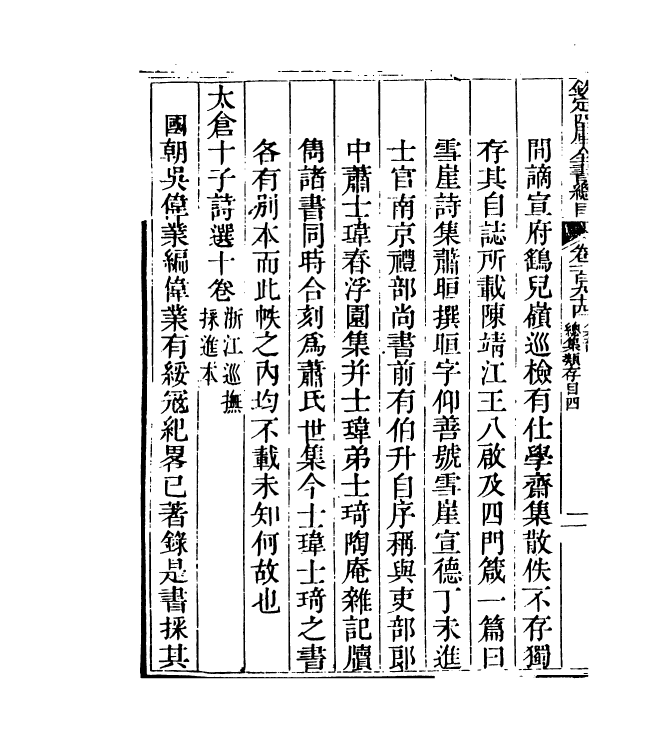 欽定四庫全書總目 卷一百九十四 集部 總集類存目四
間謫宣府鷂兒嶺巡檢有仕學齋集散佚不存獨
存其自誌所載陳靖江王八啟及四門箴一篇曰
雪崖詩集蕭晅撰晅字仰善號雪崖宣德丁未進
士官南京禮部尚書前有伯升自序稱與吏部郎
中蕭士瑋春浮園集并士瑋弟士琦陶庵雜記牘
雋諸書同時合刻為蕭氏世集今士瑋士琦之書
各有別本而此帙之內均不載未知何故也
太倉十子詩選十卷 浙江巡撫採進本
國朝吳偉業編偉業有綏冦紀畧已著錄是書採其